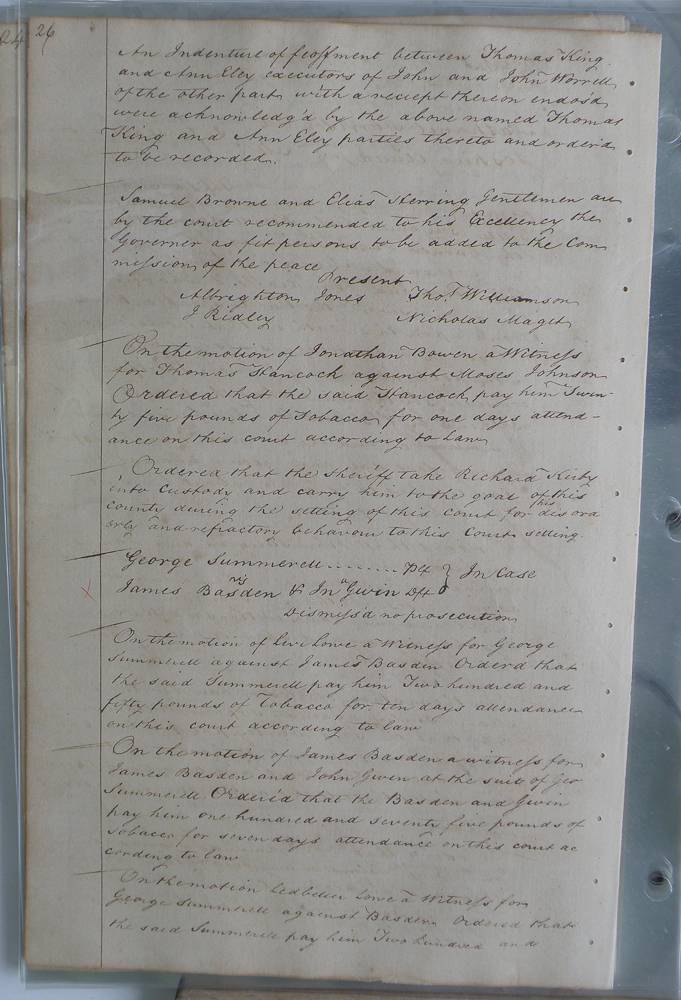 24
26
An Indenture of feoffment between Thomas King
and Ann Eley executors of John and John Worrell
of the other part with a reciept thereon endos'd
were acknowledg'd by the above named Thomas
King and Ann Eley parties thereto and order'd
to be recorded.
Samuel Browne and Elias Herring Gentlemen are
by the court recommended to his Excellency the
Governer as fit persons to be added to the Com
mission of the peace
Present
Albrighton Jones Thos. Williamson
J Ridley Nicholas Maget
On the motion of Jonathan Bowen a Witness
for Thomas Hancock against Moses Johnson
Ordered that the said Hancock pay him Twen
ty five pounds of Tobacco for one days attend-
ance on this court according to Law
Ordered that the Sheriff take Richard Kirby
into Custody and carry him to the goal of this
county during the setting of this court for his disord
erly and refractory behavour to this Court setting.
George Summerell -------- Plt } In Case
James Basden & Jna Gwin Dft
Dismiss'd no prosecution
On the motion of Levi Lowe a Witness for George
Summerell against James Basden Orderd that
the said Summerell pay him Two hundred and
fifty pounds of Tobacco for ten days attendance
on this court according to law
On the motion of James Basden a witness for
James Basden and John Gwin at the suit of Geo
Summerell Order'd that the Basden and Gwin
pay him one hundred and seventy five pounds of
Tobacco for seven days attendance on this court ac
cording to law
On the motion Ledbetter Lowe a Witness for
George Summerell against Basden Ordered that
the said Summerell pay him Two hundred and